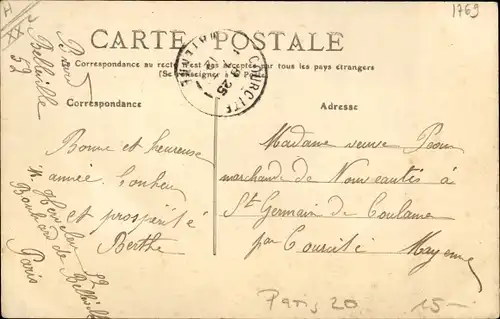 1769
H
XX
CARTE POSTALE
La Correspondance au recto n'est pas acceptée par tous les pays étrangers
(Se renseigner à la Poste)
COURCITÉ
MAYENNE
25
Correspondance
Adresse
Bonne et heureuse
année bonheur
et prospérité
Berthe
Boulevard de Belleville
Paris
Belleville
52
Madame veuve
marchande de Nouveautés à
St Germain de Coulamer
par Courcité Mayenne
Paris 20
15-